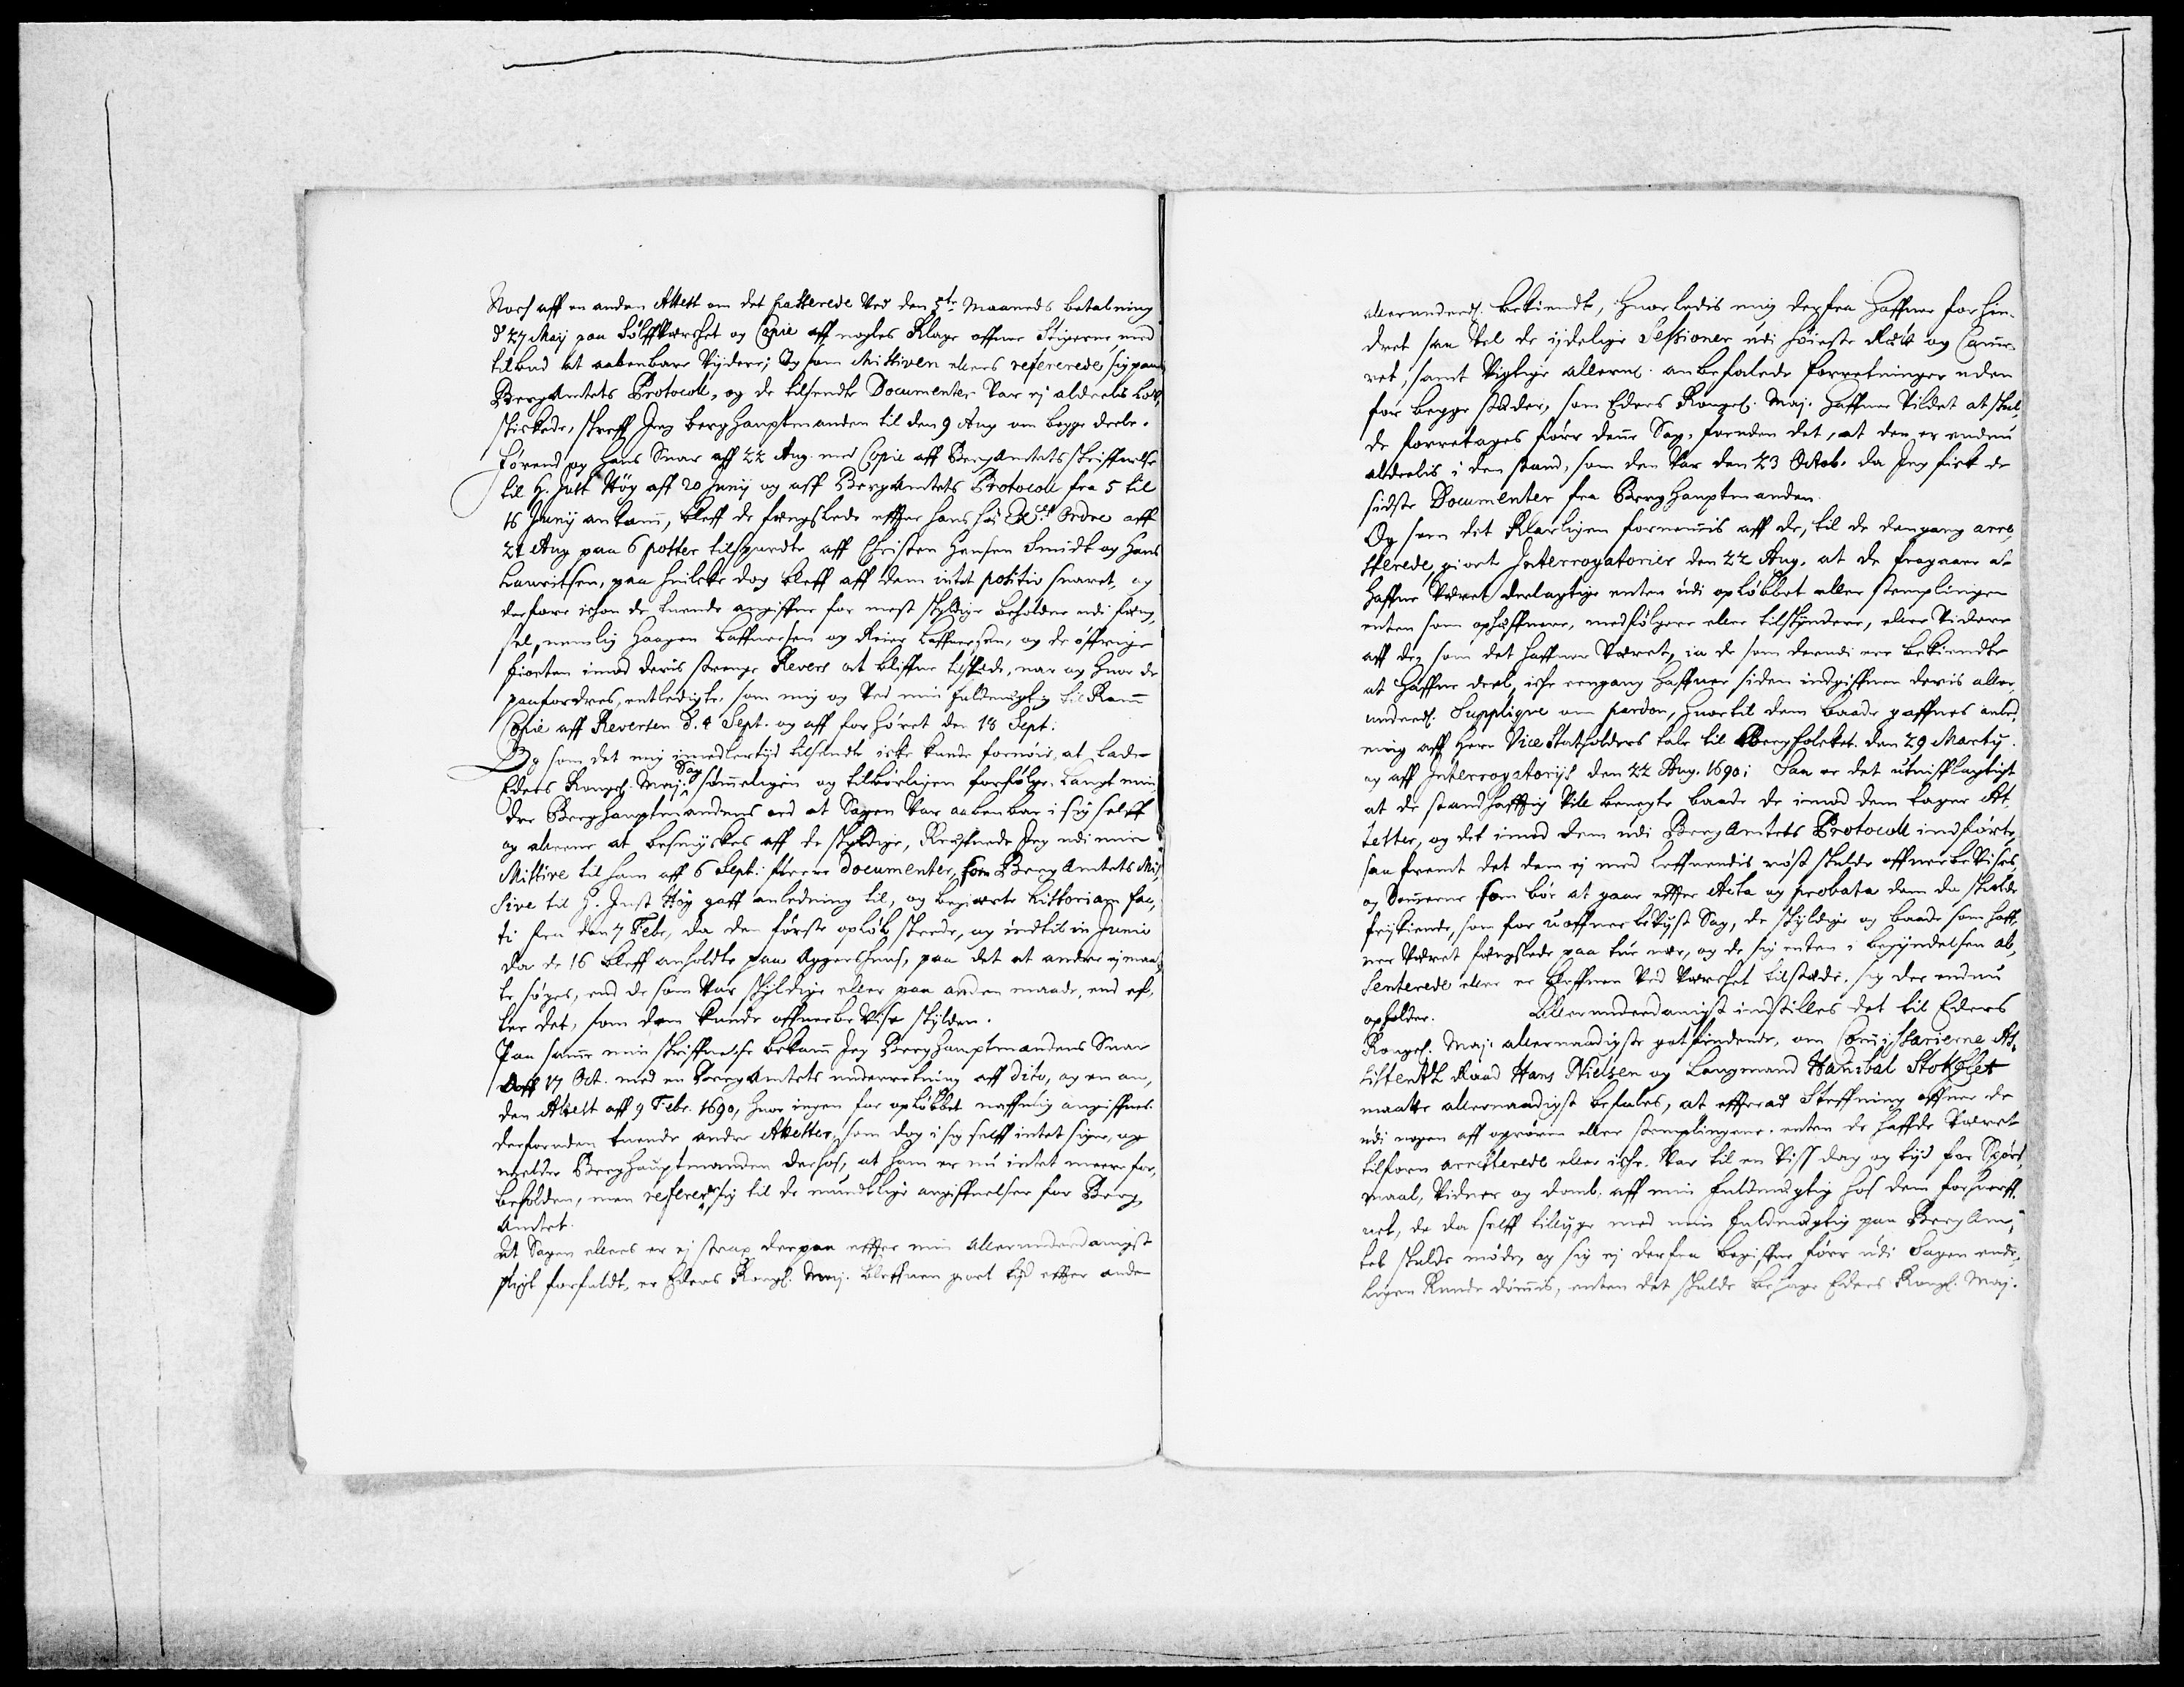 Noch aff en anden Attest om det passerede ved den 5te Maaneds betalning
d 27 Maij paa Sølffverchet og Copie aff nogles Klage offver Stigerne med
tilbud at aabenbare vijdere; Og som Missiven ellers refererede sig paa
BergAmtets Protocoll, og de tilsendte Documenter var ej aldeelis
skickede, skreff Jeg berghauptmanden til den 9 Aug om begge deele.
Førend og hans Svar aff 22 Aug. med Copie aff BergAmtets skriffvelse
til H. Just Høg aff 20 Junij og aff BergAmtets Protocoll fra 5 til
16 Junij ankam, bleff de fængslede effter hans høj Ex: Ordre aff
21 Aug paa 6 poster tilspurdte aff Christen Hansen Smidt og Hans
Lauritsen, paa hvilcke dog bleff aff dem intet positiv svaret, og
derfore ichon de tvende angiffne for mest skyldige beholdne udi fæng,
sel, nemlig Haagen Laffversen og Reier Laffversen, og de øffrige
fierten imod deris strenge Revers at bliffve tilstæde, nar og hvor de
paafordres, entledigte, som mig og ved min fuldmegtig til Kam
Copie aff Reversen d. 4 Sept. og aff forhøret den 18 Sept:
Og som det mig imedlertijd tilsendte icke kunde fornøie, at lade
Eders Kongel. Maj: Sag sømmeligen og tilbørligen forfølge, langt min
dre Berghauptmandens ord at Sagen var aabenbar i sig selff
og alleene at besmyckes aff de skyldige, Reqvirerede Jeg udi min
Missive til ham aff 6 Sept: fleere documenter, som BergAmtets Mis,
sive til H. Just Høg gaff anledning til, og begierte historiam fac,
ti fra den 7 Febr, da den første opløb skeede, og indtil in Junio
da de 16 bleff anholdte paa Aggershuus, paa det at andre ej maat
te søges, end de som var skyldige eller paa anden maade, end ef,
ter det, som dem kunde offverbevise skylden.
Paa samme min skriffvelse bekam Jeg Berghauptmandens Svar
Aff 17 Oct. med en BergAmtets underretning aff dito, og en an,
den Attest aff 9 Febr. 1690, hvor ingen for opløbbet naffnlig angiffves.
desforuden tvende andre Attester, som dog i sig selff intet siger, og
melder Berghauptmanden derhos, at ham er nu intet meere for,
beholden, men referer sig til de mundtlige angiffvelser for Berg,
Amtet.
At Sagen ellers er ej strax derpaa effter min allerunderdanigst
pligt forfuldt, er Eders Kongl. Maj. bleffven giort tijd effter anden
allerunderd. bekiendt, hvorledis mig derfra haffver forhin,
dret saa vel de ijdelige Sessioner udi høieste Ræt og Camme
ret, samt vigtige allern. anbefalede forretninger uden
for begge stæder, som Eders Kongel. Maj. haffver vildet at skul,
de forretages førr denne Sag, foruden det, at den er endnu
aldeelis i den stand, som den var den 23 Octob. da Jeg fick de
sidste Documenter fra Berghauptmanden.
Og som det klarligen fornemmis aff de, til de dengang arre,
sterede, giort Interrogatorier den 22 Aug. at de fragaaer at
haffve været deelagtige enten udi opløbbet eller stemplingen
enten som ophaffvere, medfølgere eller tilskyndere, eller videre
aff dem som det haffver været, ia de som derudi ere bekiendte
at haffve deel, icke eengang haffver siden indgiffven deris aller,
underd. Suppliqve om pardon, hvortil dem baade gaffves anled,
ning aff Herr Vice Statholders tale til Bergfolcket den 29 Martij.
og aff Interrogatorijs den 22 Aug. 1690; Saa er det utvifflagtigt
at de standhafftig vill benegte baade de imod dem tagne At,
tester, og det imod dem udi BergAmtets Protocoll indførte,
saa fremt det dem ej med leffvendis røst skulde offverbevises,
og Dommerne som bør at gaae effter Acta og probata dem da skulde
frijkiende, som for uoffverbevijst Sag, de skyldige og baade som haff,
ver været fængslede paa tvi ner, og de sig enten i begyndelsen ab,
senterede eller er bleffven ved verchet tilstæde, sig der endnu
opholder. Allerunderdanigst indstilles det til Eders
Kongel. Maj. allernaadigste gotfindende, om Commissarierne As,
sistentz Raad Hans Nielsen og Laugmand Hanibal Stokfled
maatte allernaadigst befales, at effterad Steffning offver de
udi nogen aff oprøren eller stemplingerne. enten de haffde været
tilforn arresterede eller icke. var til en viss dag og tijd for Spørs,
maal, vidner og domb. aff min fuldmegtig hos dem forhverff,
vet, de da selff tillige med min fuldmegtig paa BergAm,
tet skulde møde, og sig ej derfra begiffve førr udi Sagen ende,
ligen kunde dømmis, enten det skulde behage Eders Kongl. Maj.